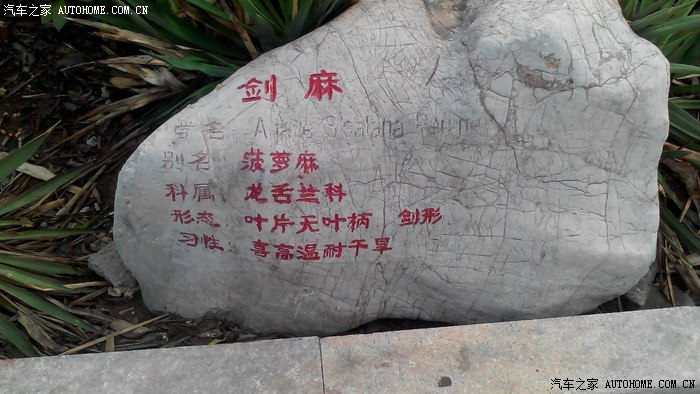 汽车之家 AUTOHOME.COM.CN
汽车之家 AUTOHOME.COM.CN
剑麻
学名 Agave Sisalana
别名 菠萝麻
科属 龙舌兰科
形态 叶片无叶柄 剑形
习性 喜高温耐干旱
汽车之家 AUTOHOME.COM.CN